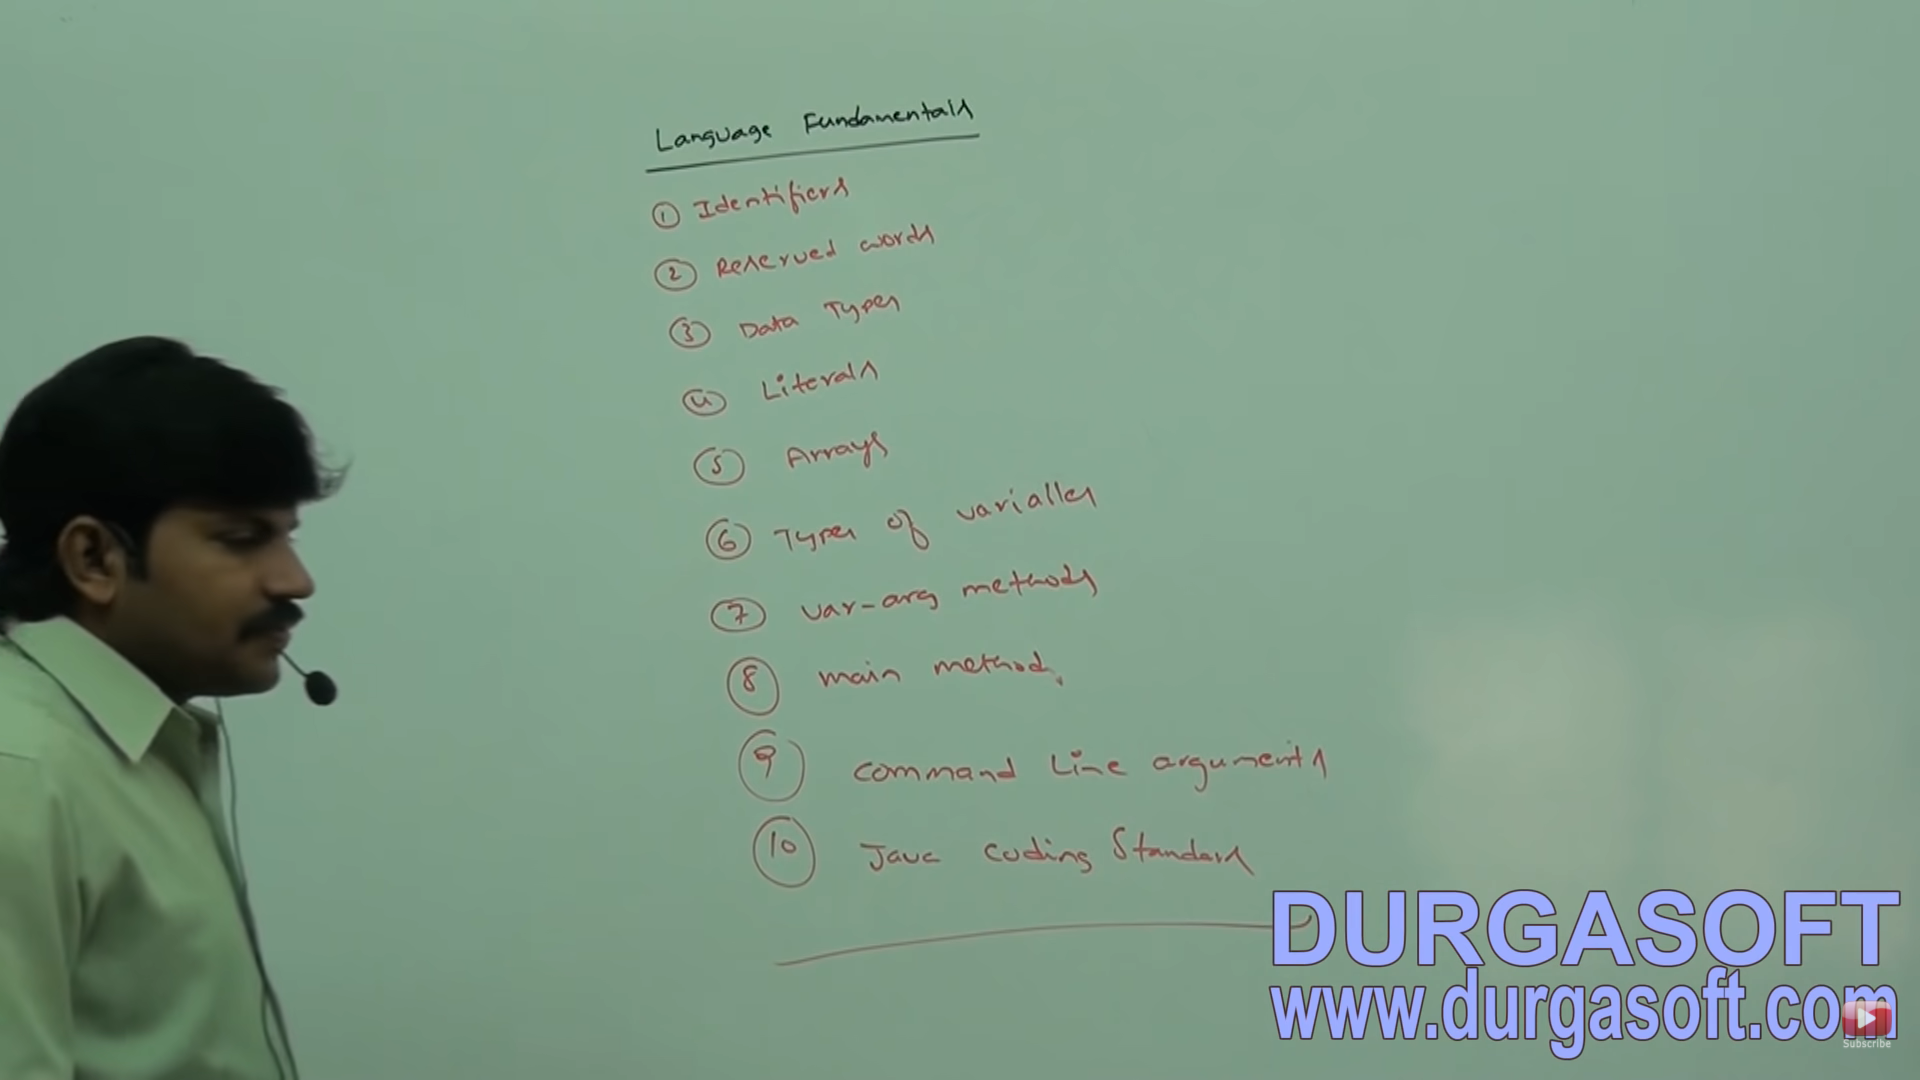 Language Fundamentals
① Identifiers
② Reserved words
③ Data Types
④ Literals
⑤ Arrays
⑥ Types of variables
⑦ var-arg methods
⑧ main method
⑨ command line arguments
⑩ Java coding Standards
DURGASOFT
www.durgasoft.com
Subscribe